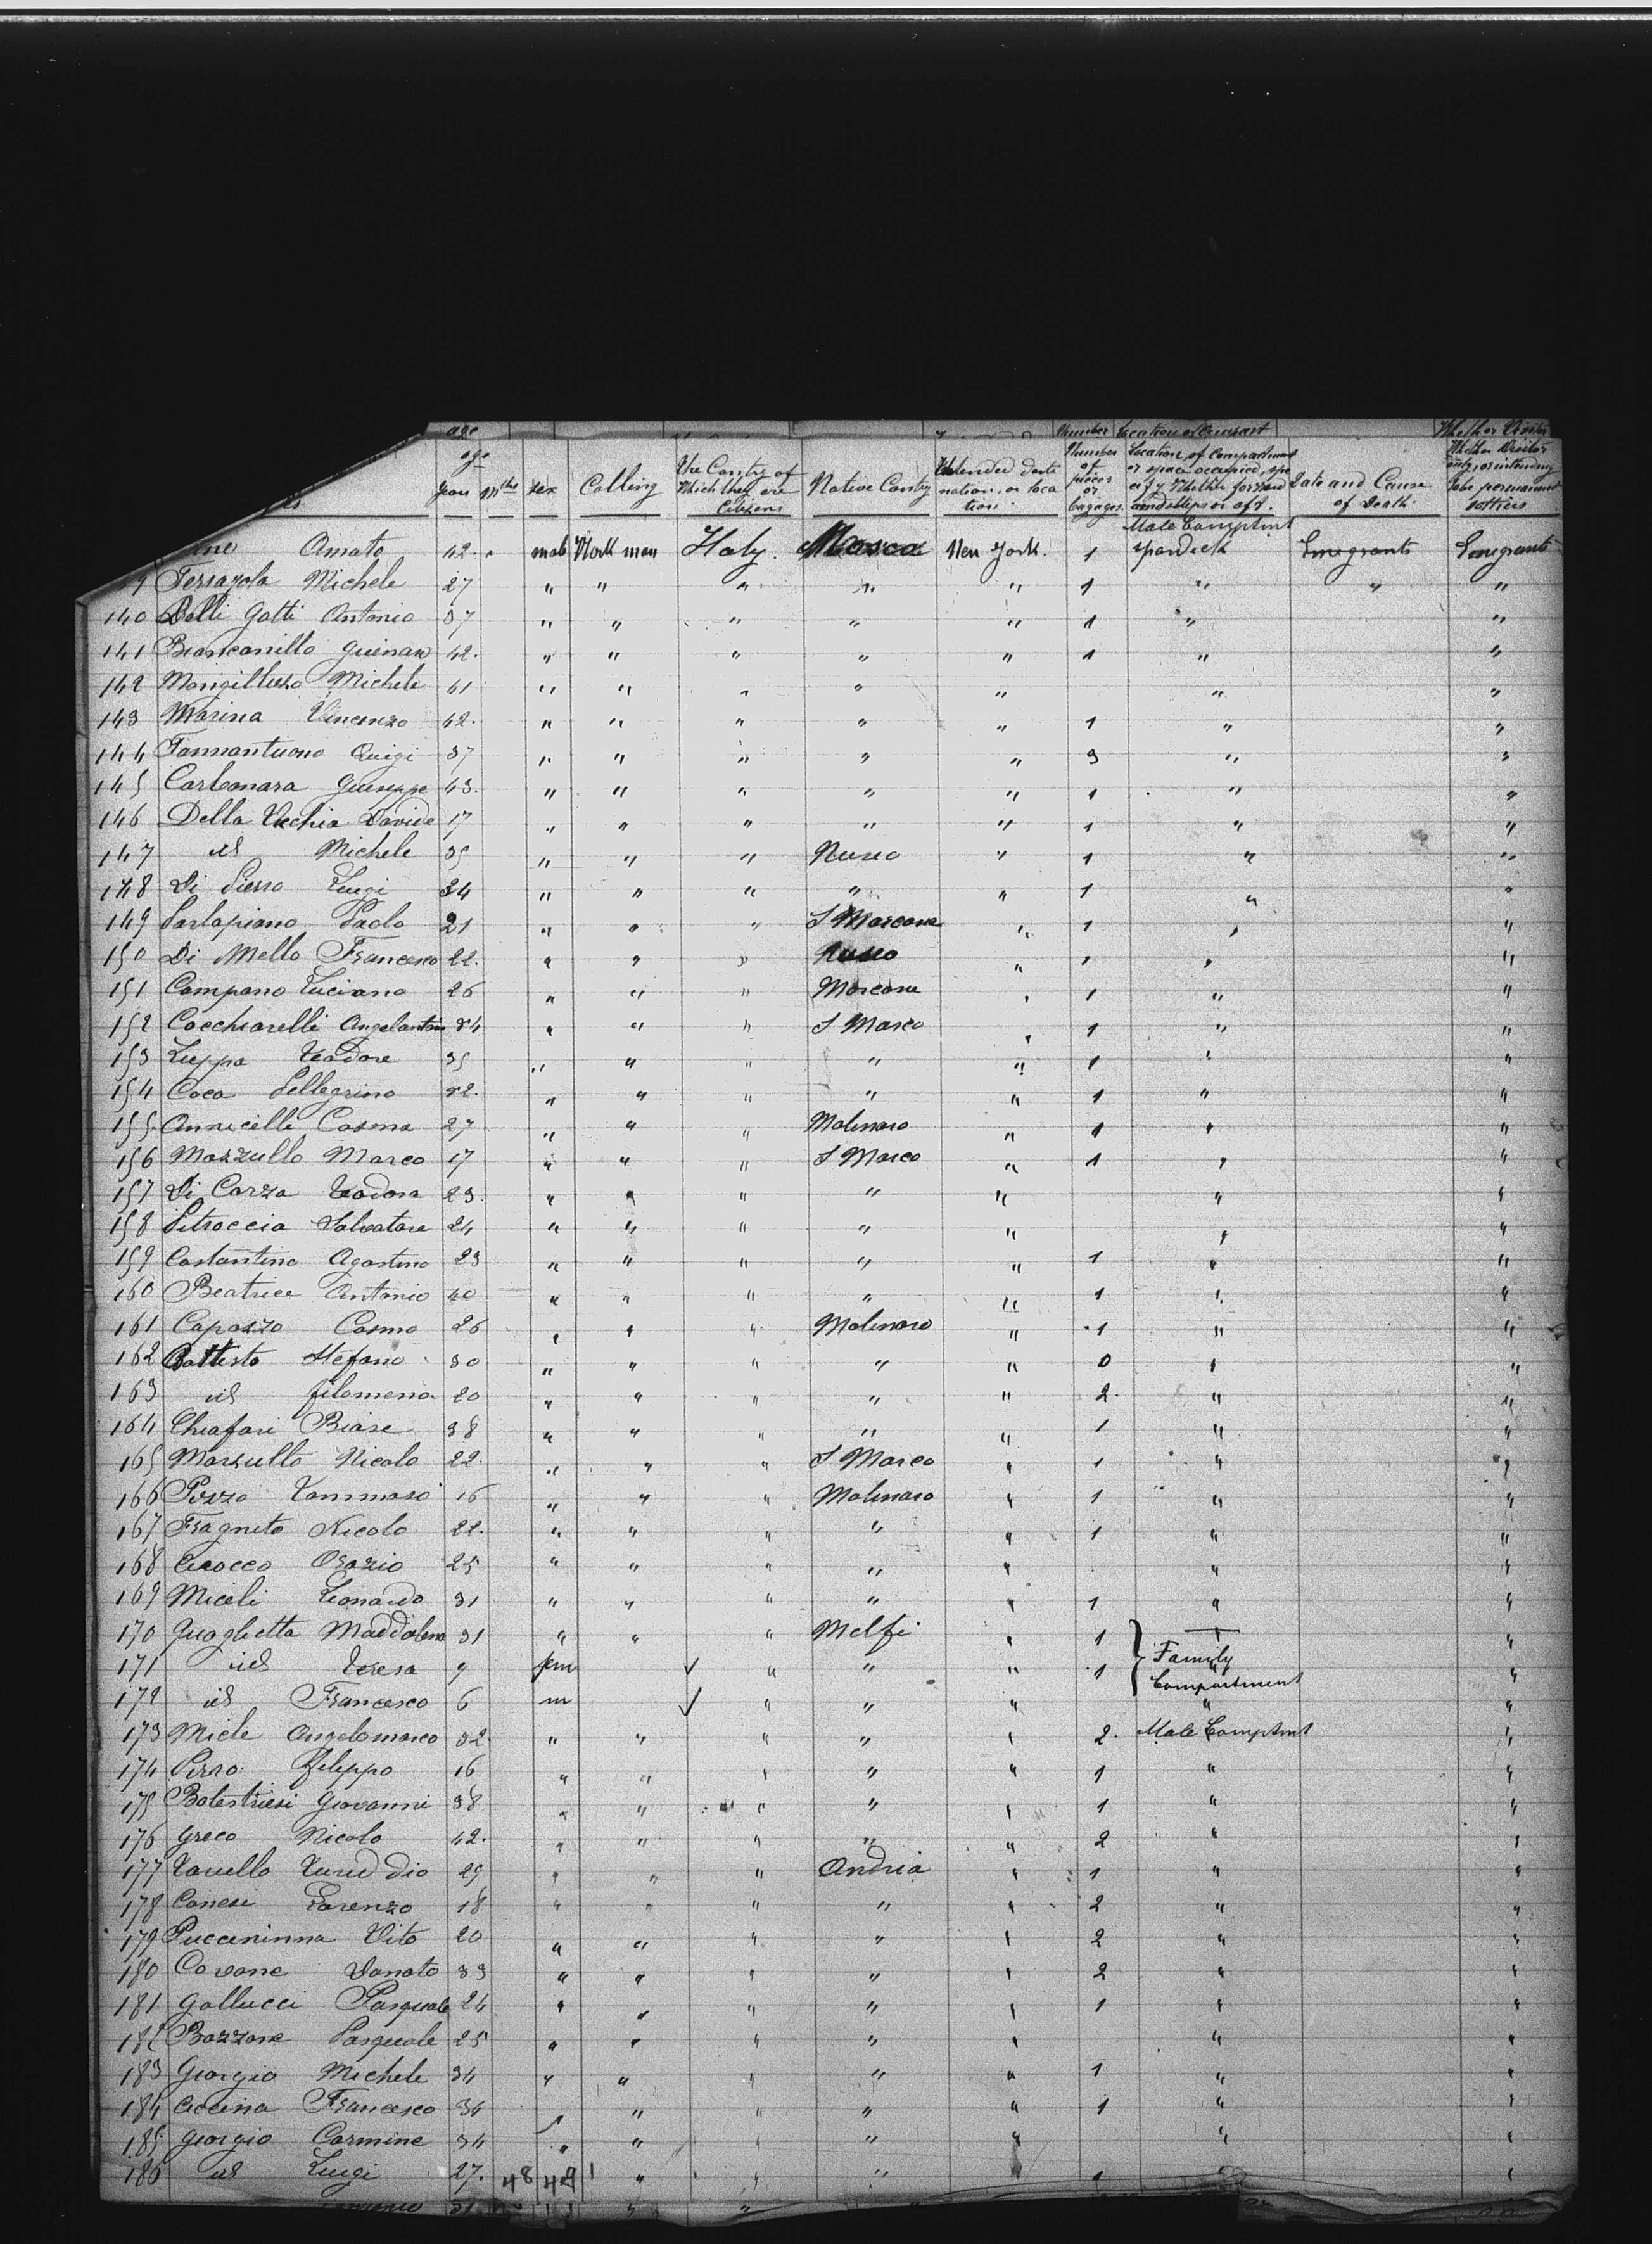 age Number Location of Whether Visitor
age Years mths sex Calling The Contry of Which they are Citizens Native Contry Intended desti nation, or loca tion Number of pieces of bagages Location of Compartment or space occupied, spe cify Whether forward amidships or aft. Date and Cause of Death Whether Visitor only, or intending to be permanent settlers
Amato 42 male Work man Italy. New York. 1 Male Comptmt spardeck Emigrants Emigrants
9 Terrazola Michele 27 " " " " " 1 " " "
140 Delli Gatti Antonio 37 " " " " " 1 " "
141 Biancanillo 42. " " " " " 1 " "
142 Michele 41 " " " " " " "
143 Marina Vincenzo 42. " " " " " 1 " "
144 Luigi 37 " " " " " 3 " "
145 Carbonara Giuseppe 43. " " " " " 1 " "
146 Della Vechia Davide 17 " " " " " 1 " "
147 id Michele 35 " " " Nusco " 1 " "
148 Di Pierro Luigi 34 " " " " " 1 " "
149 Parlapiano Paolo 21 " " " S Marcone " 1 " "
150 Di Mello Francesco 22. " " " Nusco " " " "
151 Campano Luciano 26 " " " Morcone " 1 " "
152 Cocchiarelli Angelantonio 34 " " " S Marco " 1 " "
153 Luppa Teodore 35 " " " " " 1 " "
154 Coca Pellegrino 32. " " " " " 1 " "
155 Annicelli Cosma 27 " " " Molinaro " 1 " "
156 Mazzullo Marco 17 " " " S Marco " 1 " "
157 Di Carza Teodora 23. " " " " " " "
158 Pitroccia Salvatore 24 " " " " " " "
159 Costantino Agostino 23 " " " " " 1 " "
160 Beatrice Antonio 40 " " " " " 1 " "
161 Capozzo Cosmo 26 " " " Molinaro " 1 " "
162 Battista Stefano 30 " " " " " 0 " "
163 id filomena 20 " " " " " 2. " "
164 Chiafari Biase 38 " " " " " 1 " "
165 Marzullo Nicola 22. " " " S Marco " 1 " "
166 Pozzo Tommaso 16 " " " Molinaro " 1 " "
167 Fragneto Nicolo 22. " " " " " 1 " "
168 Cirocco Orazio 25 " " " " " " "
169 Miceli Leonardo 31 " " " " " 1 " "
170 Quaglietta Maddalena 31 " " " Melfi " 1 " "
171 id Teresa 9 fem " " " 1 Family "
172 id Francesco 6 m " " " Compartment " "
173 Miele Angelomarco 32. " " " " " 2. Male Comptmt "
174 Pirro Filippo 16 " " " " " 1 " "
175 Balestrieri Giovanni 38 " " " " " 1 " "
176 Greco Nicola 42. " " " " " 2 " "
177 29 " " " Andria " 1 " "
178 Canesi Lorenzo 18 " " " " " 2 " "
179 Pucceninna Vito 20 " " " " " 2 " "
180 Covane Donato 33 " " " " " 2 " "
181 Gallucci Pasquale 24 " " " " " 1 " "
182 Bozzone Pasquale 25 " " " " " " "
183 Giorgio Michele 34 " " " " " 1 " "
184 Francesco 34 " " " " " 1 " "
185 Giorgio Carmine 34 " " " " " " "
186 id Luigi 27. 48 49 " " " " 1 " "